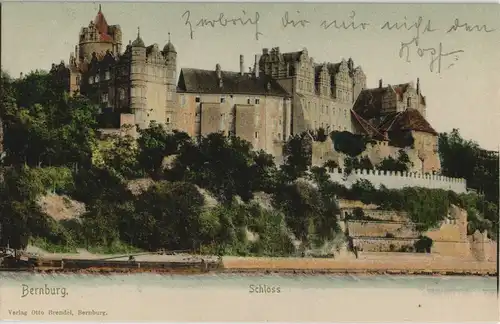 zerbrich dir nur nicht den
Kopf
Bernburg. Schloss
Verlag Otto Dremfel, Bernburg.